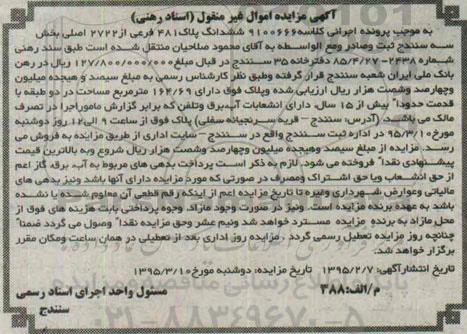 آگهی مزایده اموال غیر منقول (اسناد رهنی)
به موجب پرونده اجرائی کلاسه ۹۱۰۰۶۶۶ ششدانگ پلاک ۴۸۱ فرعی از ۲۷۲۲ اصلی بخش
سه سنندج ثبت وصادر ومع الواسطه به آقای محمود صالحیان منتقل شده است طبق سند رهنی
شماره ۲۴۳۸- ۸۵/۴/۲۷ دفترخانه ۳۵ سنندج در قبال مبلغ ۱۲۷/۸۰۰/۰۰۰/۰۰۰ ریال در رهن
بانک ملی ایران شعبه سنندج قرار گرفته وطبق نظر کارشناس رسمی به مبلغ سیصد و هیجده میلیون
وچهارصد وشصت هزار ریال ارزیابی شده وپلاک فوق دارای ۱۶۴/۶۹ مترمربع مساحت در دو طبقه با
قدمت حدودا" بیش از ۱۵ سال، دارای انشعابات آب،برق وتلفن که برابر گزارش ماموراجرا در تصرف
مالک می باشد، (آدرس: سنندج – قریه سرنجیانه سفلی) پلاک فوق از ساعت ۹ الی ۱۲ روز دوشنبه
مورخ ۹۵/۳/۱۰ در اداره ثبت سنندج واقع در سنندج – سایت اداری از طریق مزایده به فروش می
رسد. مزایده از مبلغ سیصد وهیجده میلیون وچهارصد وشصت هزار ریال شروع وبه بالاترین قیمت
پیشنهادی نقدا" فروخته می شود. لازم به ذکر است پرداخت بدهی های مربوط به آب، برق، گاز اعم
از حق انشعاب ویا حق اشتراک ومصرف در صورتی که مورد مزایده دارای آنها باشد ونیز بدهی های
مالیاتی وعوارض شهرداری وغیره تا تاریخ مزایده اعم از اینکه رقم قطعی آن معلوم شده یا نشده
باشد به عهده برنده مزایده است. ونیز در صورت وجود مازاد، وجوه پرداختی بابت هزینه های فوق از
محل مازاد به برنده مزایده مسترد خواهد شد ونیم عشر وحق مزایده نقدا" وصول می گردد ضمنا"
چنانچه روز مزایده تعطیل رسمی گردد، مزایده روز اداری بعد از تعطیلی در همان ساعت ومکان مقرر
برگزار خواهد شد.
تاریخ انتشارآگهی: ۱۳۹۵/۲/۷ تاریخ مزایده: دوشنبه مورخ ۱۳۹۵/۳/۱۰
م/الف:۳۸۸
مسئول واحد اجرای اسناد رسمی
سنندج
۰۲۱-۸۸۳۴۹۶۷۰-۵